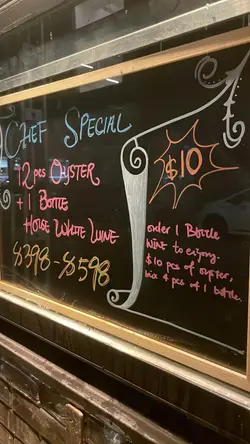 CHEF SPECIAL
12 PCS OYSTER
+ 1 BOTTLE
HOUSE WHITE WINE
$398 - $598
$10
order 1 Bottle
WINE to enjoy
$10 pcs of oyster,
4 pcs of 1 bottle.